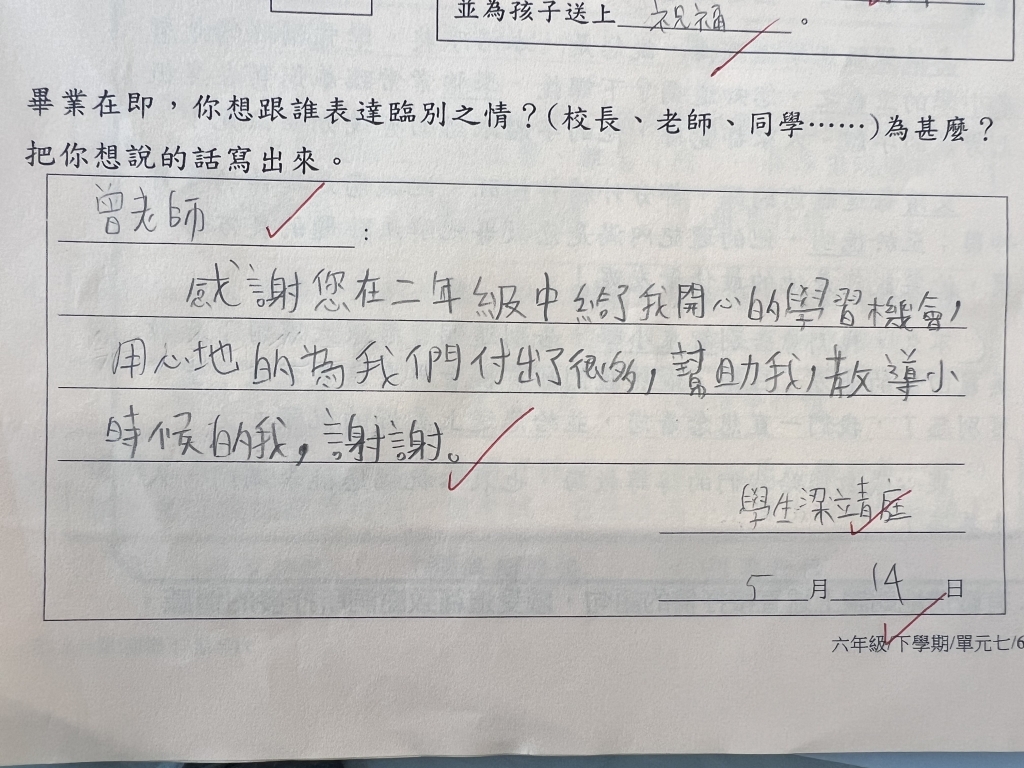 並為孩子送上 祝福 。
畢業在即，你想跟誰表達臨別之情？(校長、老師、同學……)為甚麼？
把你想說的話寫出來。
曾老師 :
感謝您在二年級中給了我開心的學習機會，
用心地的為我們付出了很多，幫助我，教導小
時候的我，謝謝。
學生梁靖庭
5 月 14 日
六年級/下學期/單元七/6